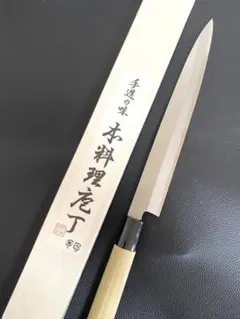 手造の味
本料理庖丁